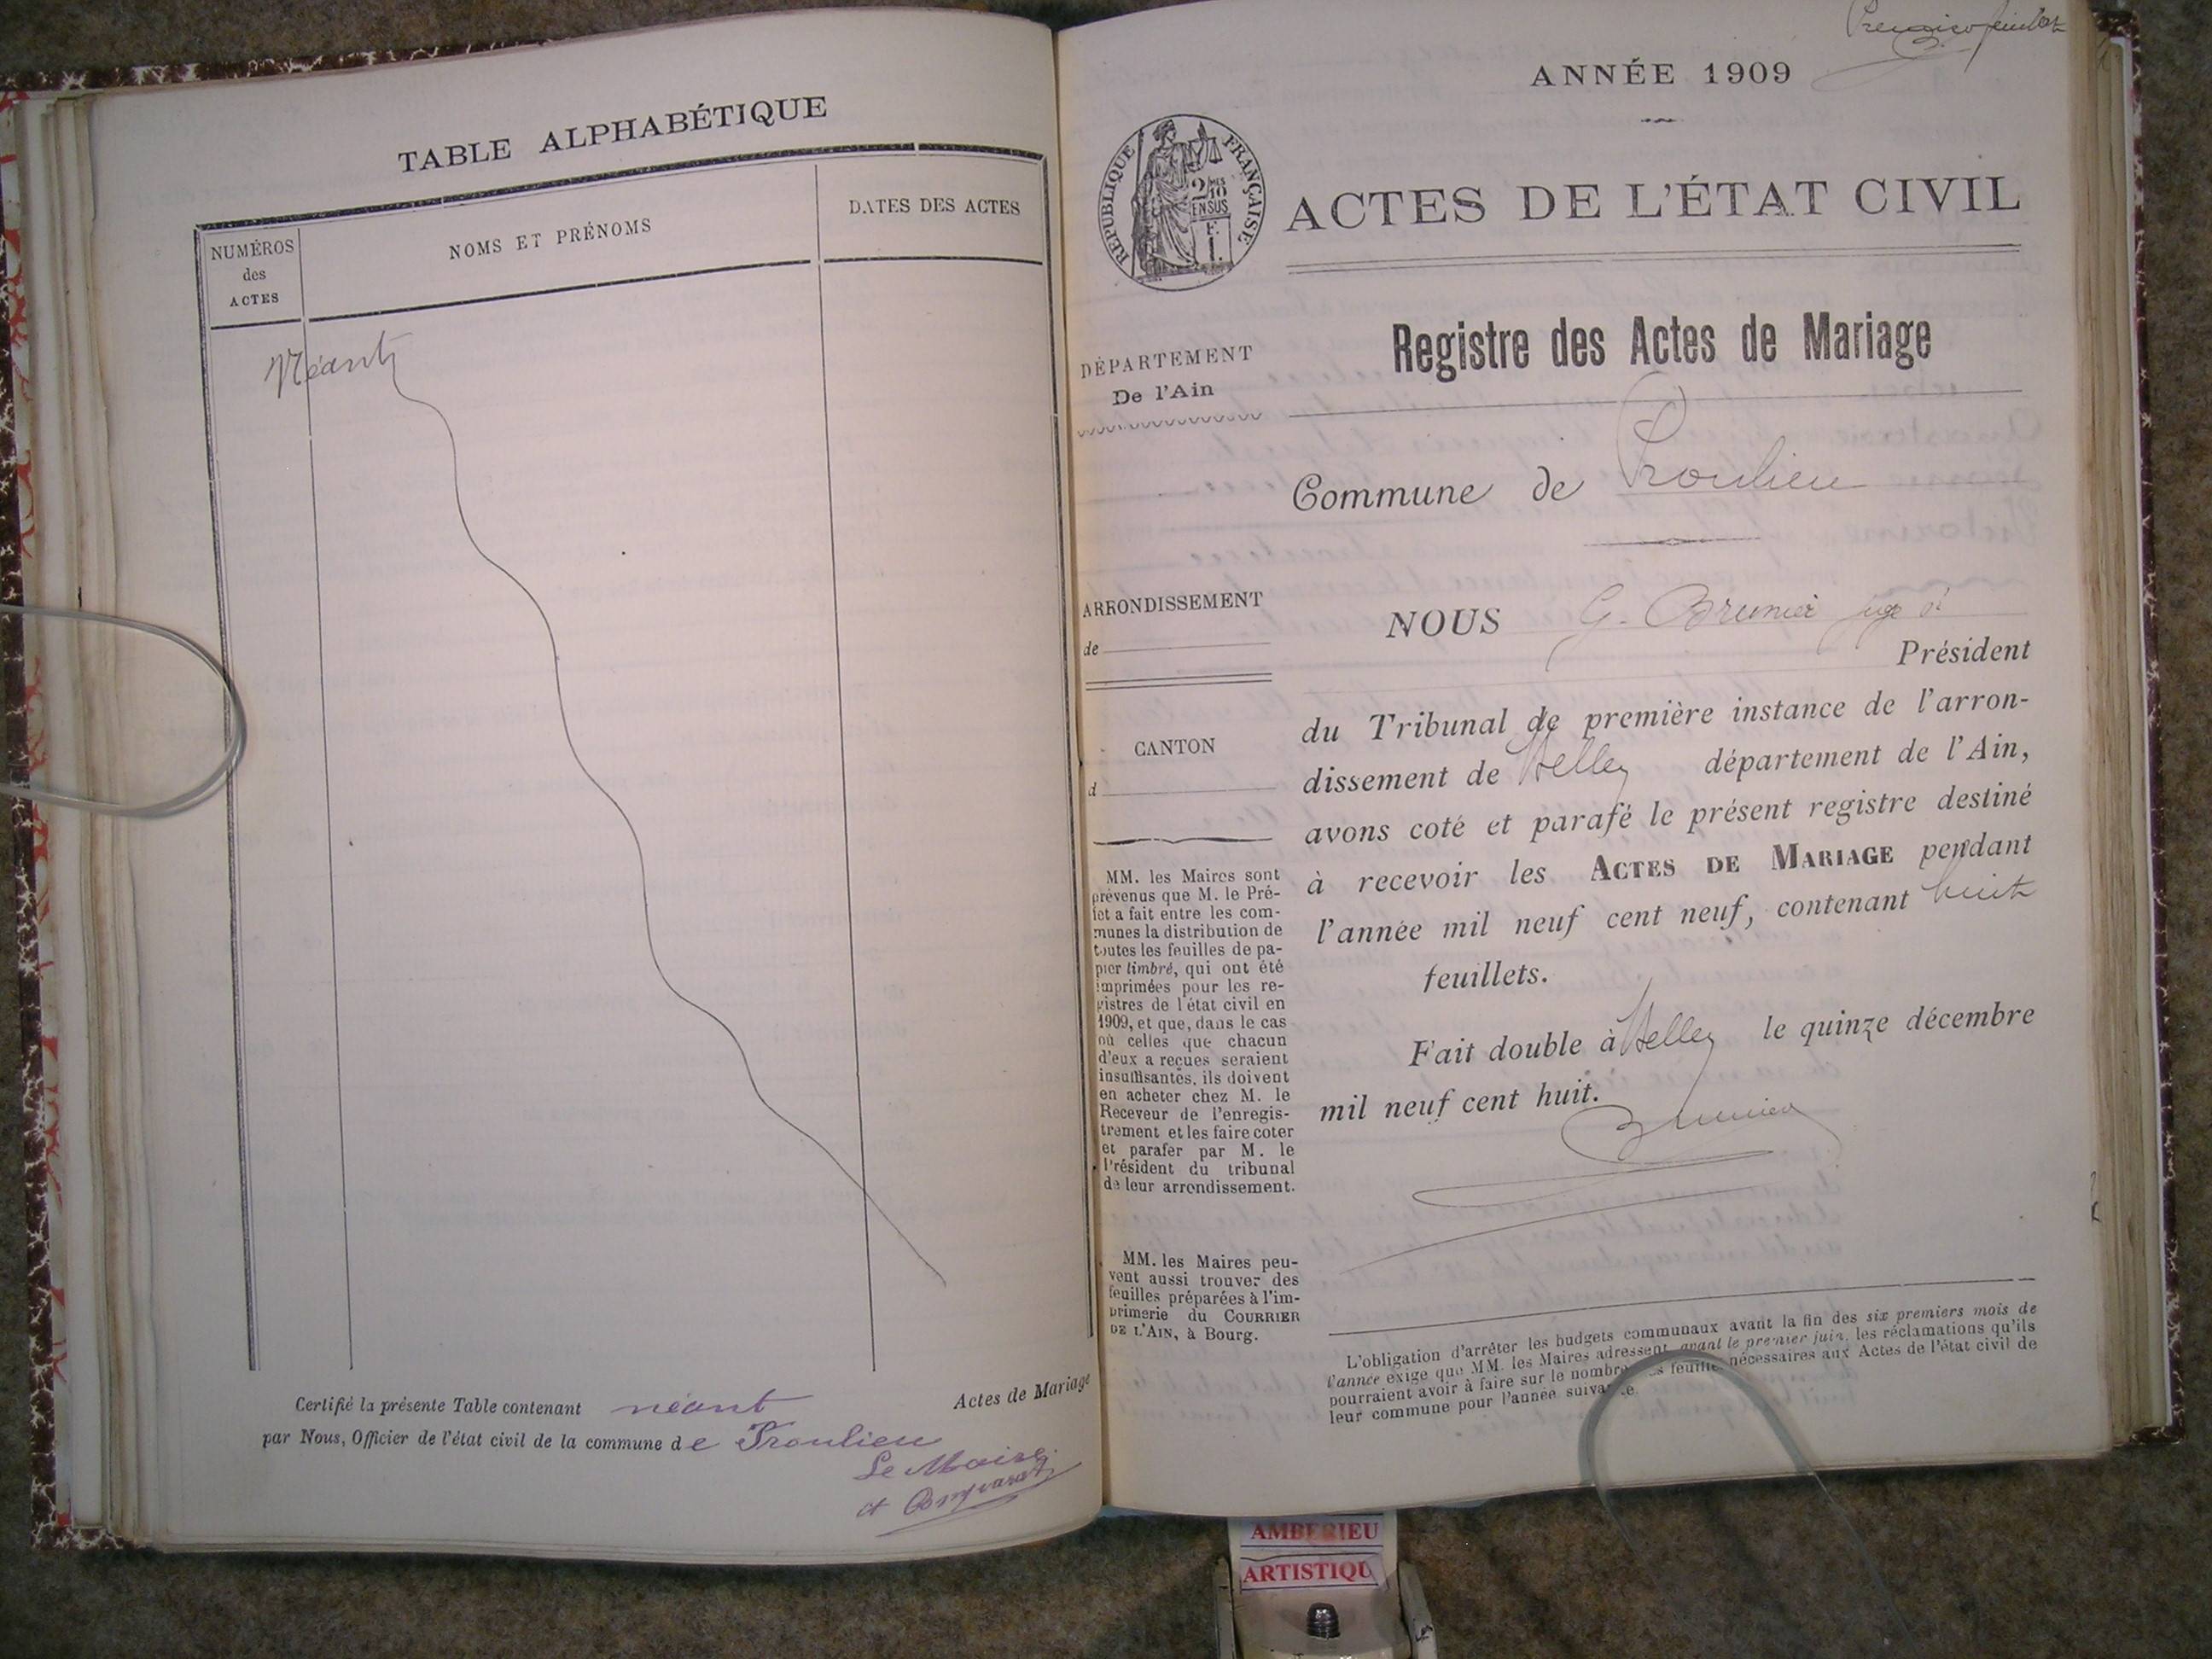 TABLE ALPHABÉTIQUE
NUMÉROS
des
ACTES
NOMS ET PRÉNOMS
DATES DES ACTES
Néant
Certifié la présente Table contenant néant Actes de Mariage
par Nous, Officier de l'état civil de la commune de Proulieu
Le Maire
Premier feuillet
ANNÉE 1909
RÉPUBLIQUE FRANÇAISE
2/10
EN SUS
ACTES DE L'ÉTAT CIVIL
DÉPARTEMENT
De l'Ain
Registre des Actes de Mariage
Commune de Proulieu
ARRONDISSEMENT
de
CANTON
d
MM. les Maires sont
prévenus que M. le Pré-
fet a fait entre les com-
munes la distribution de
toutes les feuilles de pa-
pier timbré, qui ont été
imprimées pour les re-
gistres de l'état civil en
1909, et que, dans le cas
où celles que chacun
d'eux a reçues seraient
insuffisantes, ils doivent
en acheter chez M. le
Receveur de l'enregis-
trement et les faire coter
et parafer par M. le
Président du tribunal
de leur arrondissement.
MM. les Maires peu-
vent aussi trouver des
feuilles préparées à l'im-
primerie du COURRIER
DE L'AIN, à Bourg.
NOUS G. Brunier juge
Président
du Tribunal de première instance de l'arron-
dissement de Belley département de l'Ain,
avons coté et parafé le présent registre destiné
à recevoir les ACTES DE MARIAGE pendant
l'année mil neuf cent neuf, contenant huit
feuillets.
Fait double à Belley le quinze décembre
mil neuf cent huit.
Brunier
L'obligation d'arrêter les budgets communaux avant la fin des six premiers mois de
l'année exige que MM. les Maires adressent, avant le premier juin, les réclamations qu'ils
pourraient avoir à faire sur le nombre feuilles nécessaires aux Actes de l'état civil de
leur commune pour l'année suivante.
AMBERIEU
ARTISTIQU